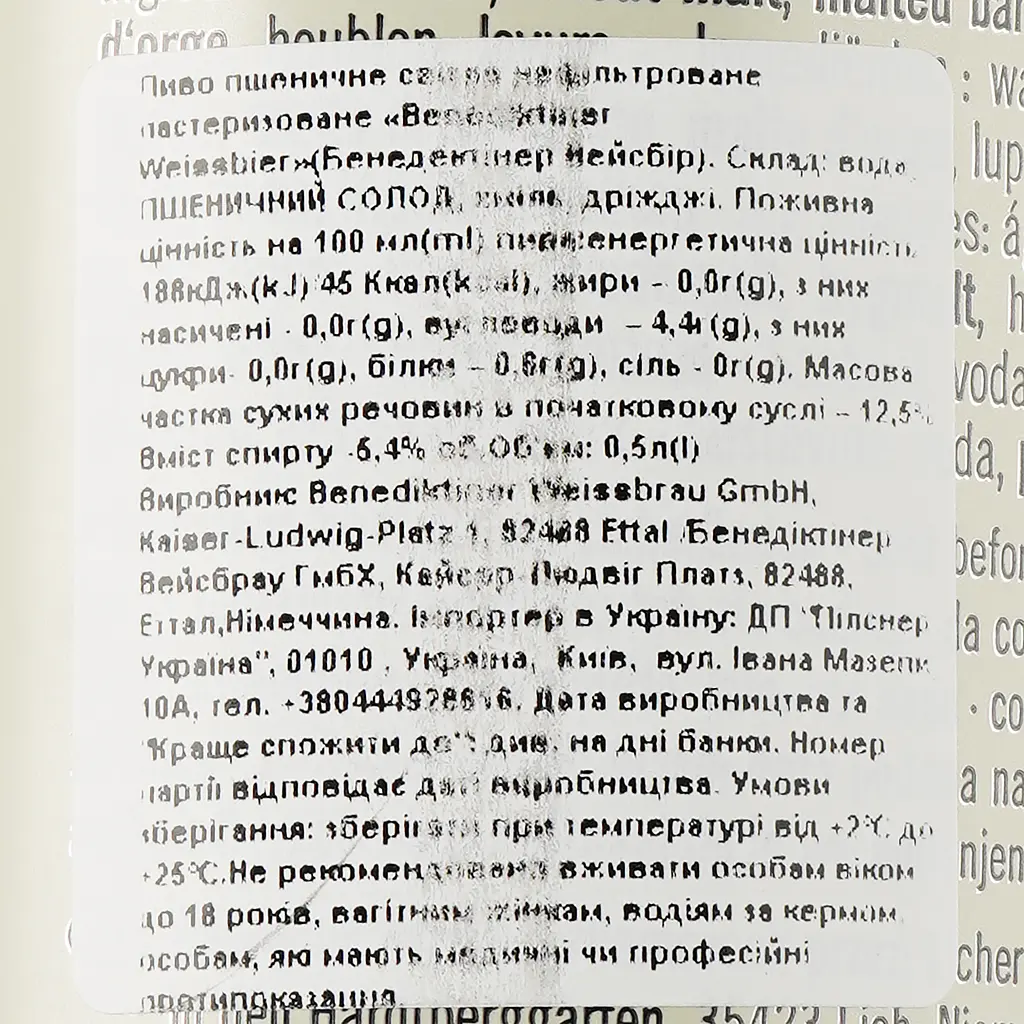 d'orge, houblon, levure
Пиво пшеничне світле нефільтроване
пастеризоване «Benediktiner
Weissbier»(Бенедектінер Вейсбір). Склад: вода,
ПШЕНИЧНИЙ СОЛОД, хміль, дріжджі. Поживна
цінність на 100 мл(ml) пива:енергетична цінність
188кДж(kJ)/45 Ккал(kcal), жири - 0,0г(g), з них
насичені - 0,0г(g), вуглеводи - 4,4г(g), з них
цукри- 0,0г(g), білки - г(g), сіль - 0г(g). Масова
частка сухих речовин в початковому суслі - 12,5%
Вміст спирту об.Об'єм: 0,5л(l)
Виробник: Benediktiner Weissbrau GmbH,
Kaiser-Ludwig-Platz 1, 82488 Ettal /Бенедіктінер
Вейсбрау ГмбХ, Кайсер-Людвіг Платз, 82488,
Еттал,Німеччина. Імпортер в Україну: ДП "Пілснер
Україна", 01010 , Україна, Київ, вул. Івана Мазепи
10А, тел. Дата виробництва та
"Краще спожити до": див. на дні банки. Номер
партії відповідає даті виробництва. Умови
зберігання: зберігати при температурі від +2°C до
+25°C.Не рекомендовано вживати особам віком
до 18 років, вагітним жінкам, водіям за кермом,
особам, які мають медичні чи професійні
протипоказання.